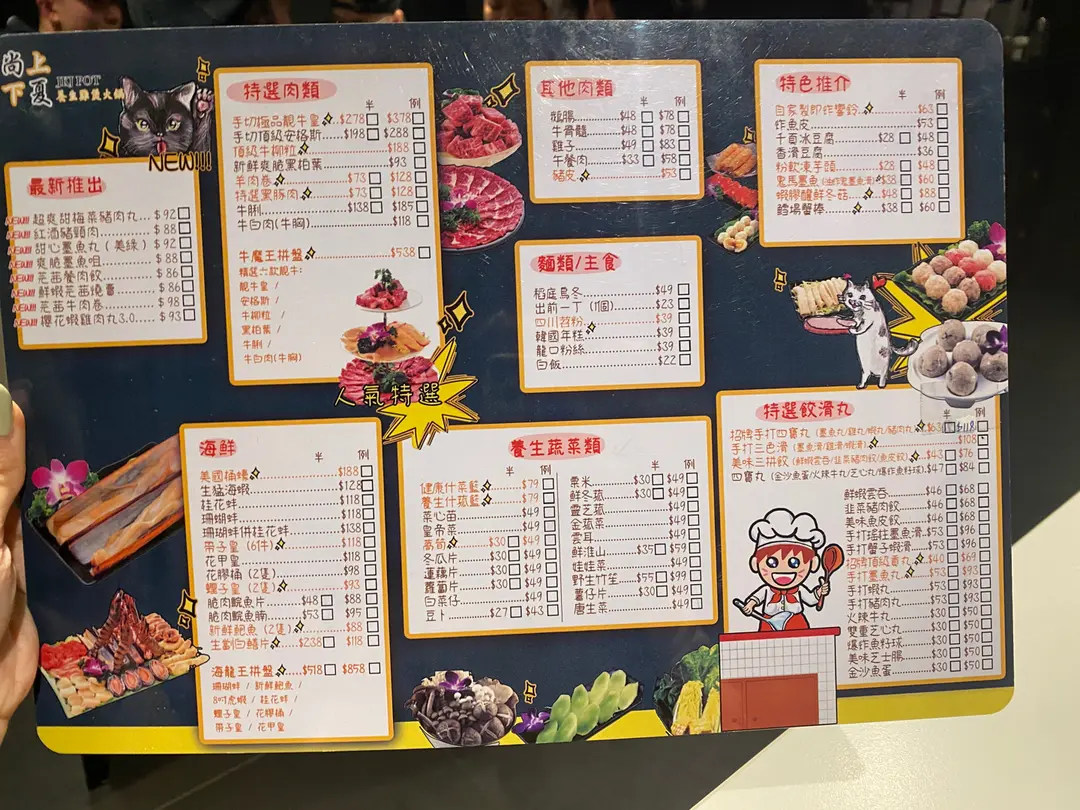 尚上
下夏
養生雞煲火鍋
NEW!!!
最新推出
NEW!!! 超爽甜梅菜豬肉丸... $ 92
NEW!!! 紅酒豬頸肉 $ 88
NEW!!! 甜心墨魚丸 ( 美綠 ) $ 92
NEW!!! 爽脆墨魚咀 $ 88
NEW!!! 芫茜餐肉餃 $ 86
NEW!!! 鮮蝦芫茜燒賣 $ 86
NEW!!! 芫茜牛肉卷 $ 98
NEW!!! 櫻花蝦雞肉丸3.0..... $ 93
特選肉類
半 例
手切極品靚牛皇 $278 $378
手切頂級安格斯 $198 $288
頂級牛柳粒 $188
新鮮爽脆黑柏葉 $93
羊肉卷 $73 $128
特選黑豚肉 $73 $128
牛脷 $138 $185
牛白肉(牛胸) $118
牛魔王拼盤 $538
精選六款靚牛:
靚牛皇 /
安格斯 /
牛柳粒 /
黑柏葉 /
牛脷 /
牛白肉(牛胸)
人氣特選
其他肉類
半 例
鵝腸 $48 $78
牛骨髓 $48 $78
雞子 $49 $83
午餐肉 $33 $58
豬皮 $53
麵類/主食
稻庭烏冬 $49
出前一丁 (1個) $23
四川苕粉 $39
韓國年糕 $39
龍口粉絲 $39
白飯 $22
特色推介
半 例
自家製即炸響鈴 $63
炸魚皮 $53
千頁冰豆腐 $28 $48
香滑豆腐 $36
粉軟凍芋頭 $28 $48
鬼馬墨魚 $38 $60
蝦膠釀鮮冬菇 $48 $88
鱈場蟹棒 $38 $60
海鮮
半 例
美國桶蠔 $188
生猛海蝦 $128
桂花蚌 $118
珊瑚蚌 $118
珊瑚蚌併桂花蚌 $138
帶子皇 (6件) $118
花甲皇 $118
花膠桶 (2隻) $98
螺子皇 (2隻) $93
脆肉鯇魚片 $48 $88
脆肉鯇魚腩 $53 $95
新鮮鮑魚 (2隻) $88
生劏白鱔片 $238 $118
海龍王拼盤 $518 $858
珊瑚蚌 / 新鮮鮑魚 /
8吋虎蝦 / 桂花蚌 /
螺子皇 / 花膠桶 /
帶子皇 / 花甲皇
養生蔬菜類
半 例
健康什菜籃 $79
養生什菰籃 $79
菜心苗 $49
皇帝菜 $49
萵筍 $30 $49
冬瓜片 $30 $49
蓮藕片 $30 $49
蘿蔔片 $30 $49
白菜仔 $49
豆卜 $27 $43
半 例
粟米 $30 $49
鮮冬菰 $30 $49
靈芝菇 $49
金菰菜 $49
雲耳 $49
鮮淮山 $35 $59
娃娃菜 $49
野生竹笙 $55 $99
薯仔片 $30 $49
唐生菜 $49
特選餃滑丸
半 例
招牌手打四寶丸 (墨魚丸/雞丸/蝦丸/豬肉丸) $63 $118
手打三色滑 (墨魚滑/雞滑/蝦滑) $108
美味三拼餃 (鮮蝦雲吞/韮菜豬肉餃/魚皮餃) $43 $76
四寶丸 (金沙魚蛋/火辣牛丸/芝心丸/爆炸魚籽球) $47 $84
鮮蝦雲吞 $46 $68
韮菜豬肉餃 $46 $68
美味魚皮餃 $46 $68
手打瑤柱墨魚滑 $53 $96
手打蟹子蝦滑 $53 $96
招牌頂級貢丸 $40 $69
手打墨魚丸 $53 $93
手打蝦丸 $53 $93
手打豬肉丸 $53 $93
火辣牛丸 $30 $50
雙重芝心丸 $30 $50
爆炸魚籽球 $30 $50
美味芝士腸 $30 $50
金沙魚蛋 $30 $50